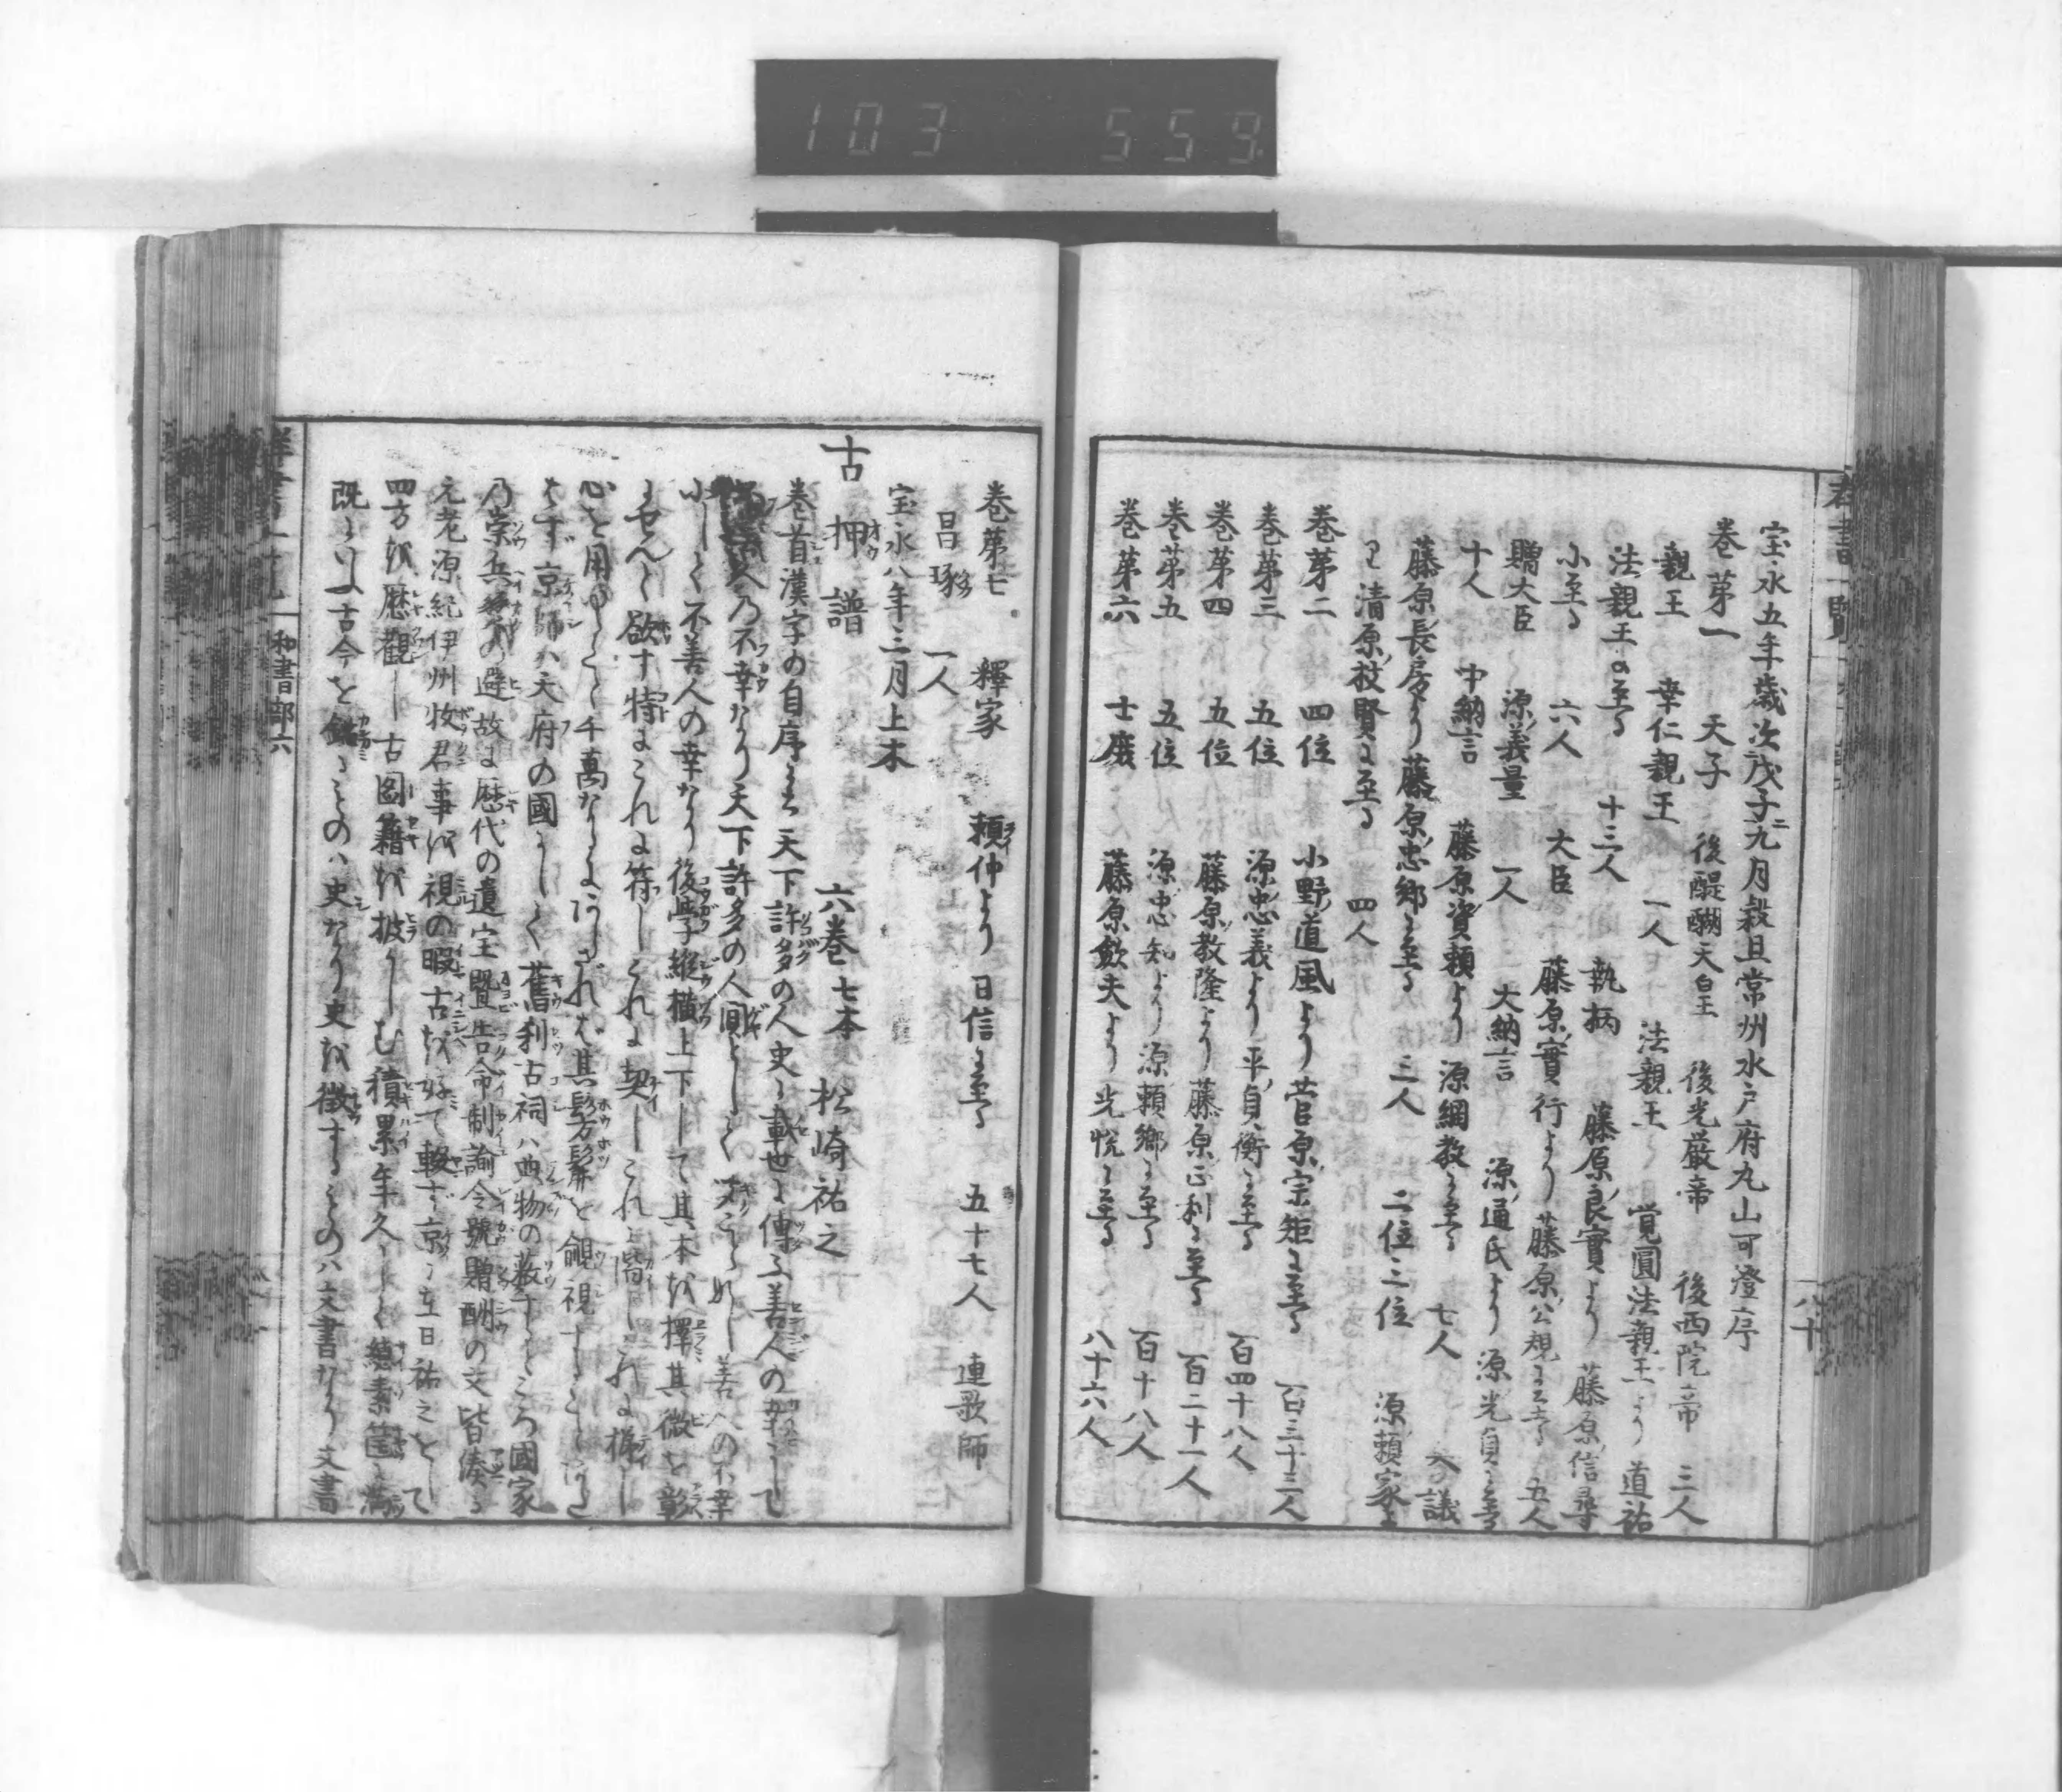 103 559
宝永五年歳次戊子九月穀旦常州水戸府丸山可澄序
巻第一 天子 後醍醐天皇 後光厳帝 後西院帝 三人
親王 幸仁親王 一人 法親王 覚圓法親王より 道祐
法親王に至る 十三人 執柄 藤原良實より 藤原信尋
小至る 六人 大臣 藤原實行より 藤原公規に至る 五人
贈大臣 源義量 一人 大納言 源通氏より 源光貞に至る
十人 中納言 藤原資頼より 源綱教に至る 七人 参議
藤原長房より 藤原忠郷に至る 三人 二位三位 源頼家よ
り 清原枝賢に至る 四人
巻第二 四位 小野道風より 菅原宗矩に至る 百三十三人
巻第三 五位 源忠義より 平貞衡に至る 百四十八人
巻第四 五位 藤原教隆より 藤原正利に至る 百二十一人
巻第五 五位 源忠知より 源頼郷に至る 百十八人
巻第六 士庶 藤原歓夫より 光悦に至る 八十六人
群書一覧
八十
巻第七 釋家 頼仲より 日信に至る 五十七人 連歌師
昌琢 一人
宝永八年三月上木
古押譜 六巻七本 松崎祐之
巻首漢字の自序に云天下許多の人史に載世に傳ふ善人の幸にして
人の不幸なり天下許多の人間として 善人の不幸
小して不善人の幸なり後學縦横上下して其本を擇其微を彰
にせんと欲す特にこれに符しこれに契しこれに階しこれに梯し
心を用ゆること千萬なるに
はず京師ハ天府の國にして舊刹古祠ハ典物の藪すところ國家
乃崇兵燹の避故に歴代の遺宝曁告命制諭令號贈酬の文皆湊る
元老源紀伊州牧君事を視の暇古を好て輟ず京に在日祐之をして
四方を歴觀し古圖籍を披かしむ積累年久しく
既にいふ古今を鑑ることのハ史なり史を徴するものハ文書なり文書
和書部六